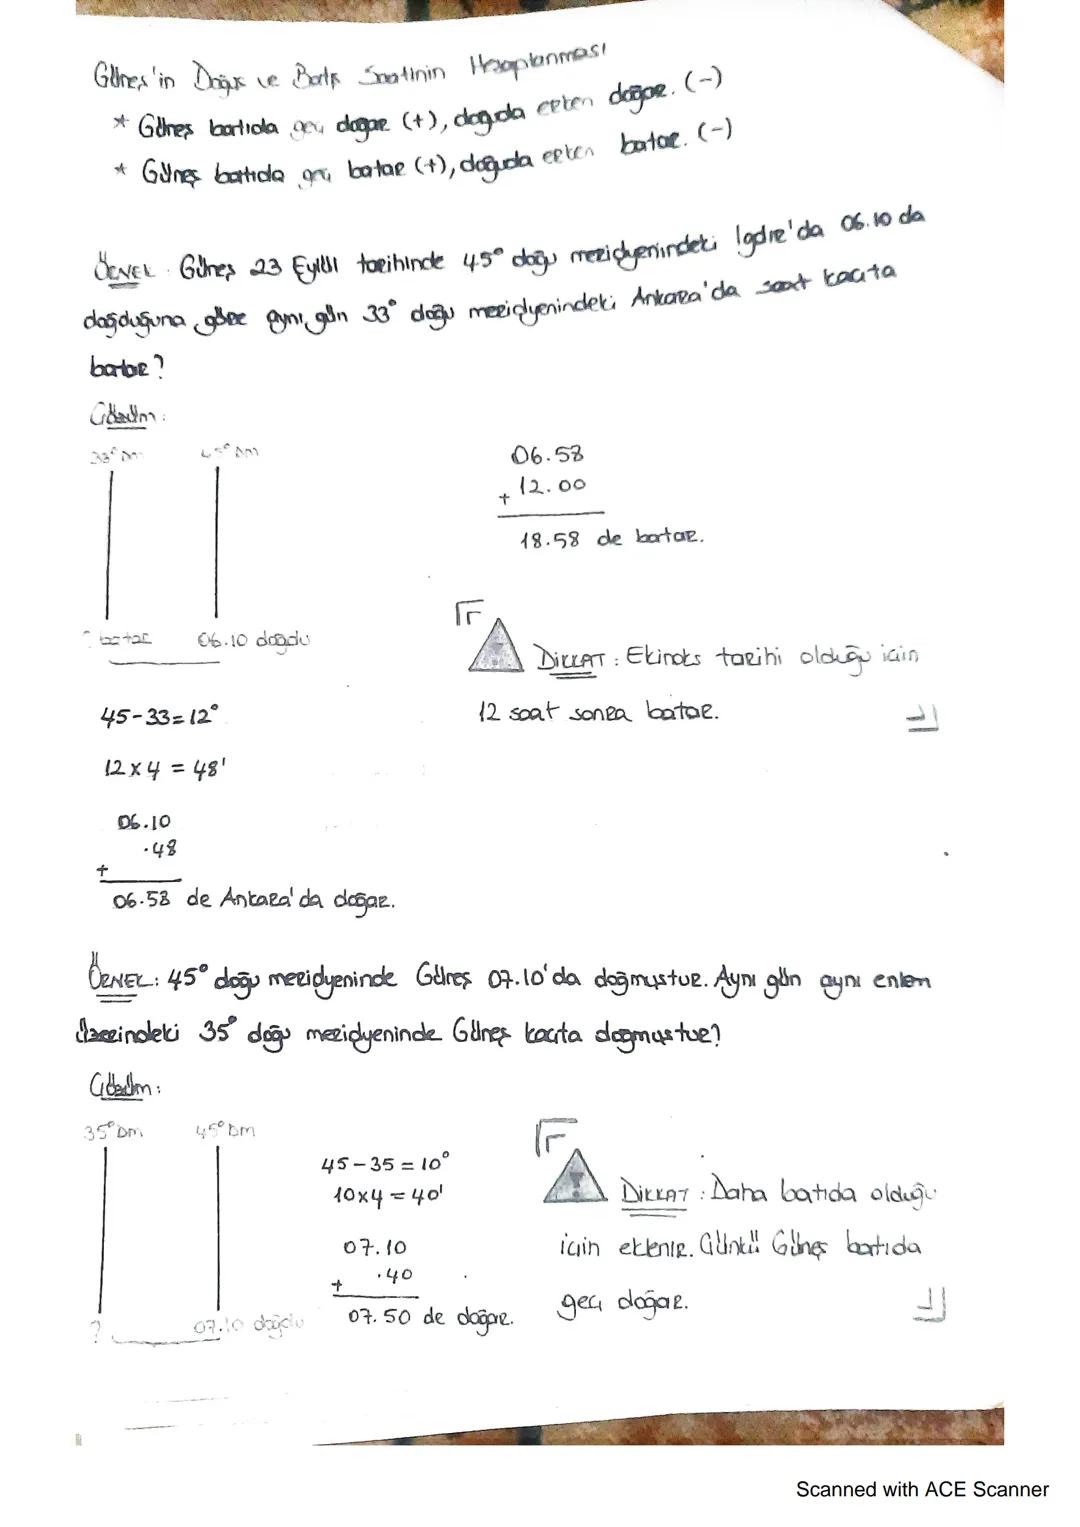 Güneş'in Doğuş ve Batış Saatinin Hesaplanması
* Güneş batıda geç doğar (+), doğuda erken doğar. (-)
* Güneş batıda geç batar (+), doğuda erken batar. (-)
ÖRNEK: Güneş 23 Eylül tarihinde 45° doğu meridyenindeki Iğdır'da 06.10 da
doğduğuna göre aynı gün 33° doğu meridyenindeki Ankara'da saat kaçta
batar?
Çözüm:
33° DM 45° DM
? batar 06.10 doğdu
45-33=12°
12x4 = 48'
06.10
+ .48
06.58 de Ankara'da doğar.
06.58
+ 12.00
18.58 de batar.
DİKKAT: Ekinoks tarihi olduğu için
12 saat sonra batar.
ÖRNEK: 45° doğu meridyeninde Güneş 07.10'da doğmuştur. Aynı gün aynı enlem
üzerindeki 35° doğu meridyeninde Güneş kaçta doğmuştur?
Çözüm:
35° DM 45° DM
? 07.10 doğdu
45-35=10°
10x4=40'
07.10
+ .40
07.50 de doğar.
DİKKAT: Daha batıda olduğu
için eklenir. Çünkü Güneş batıda
geç doğar.
Scanned with ACE Scanner